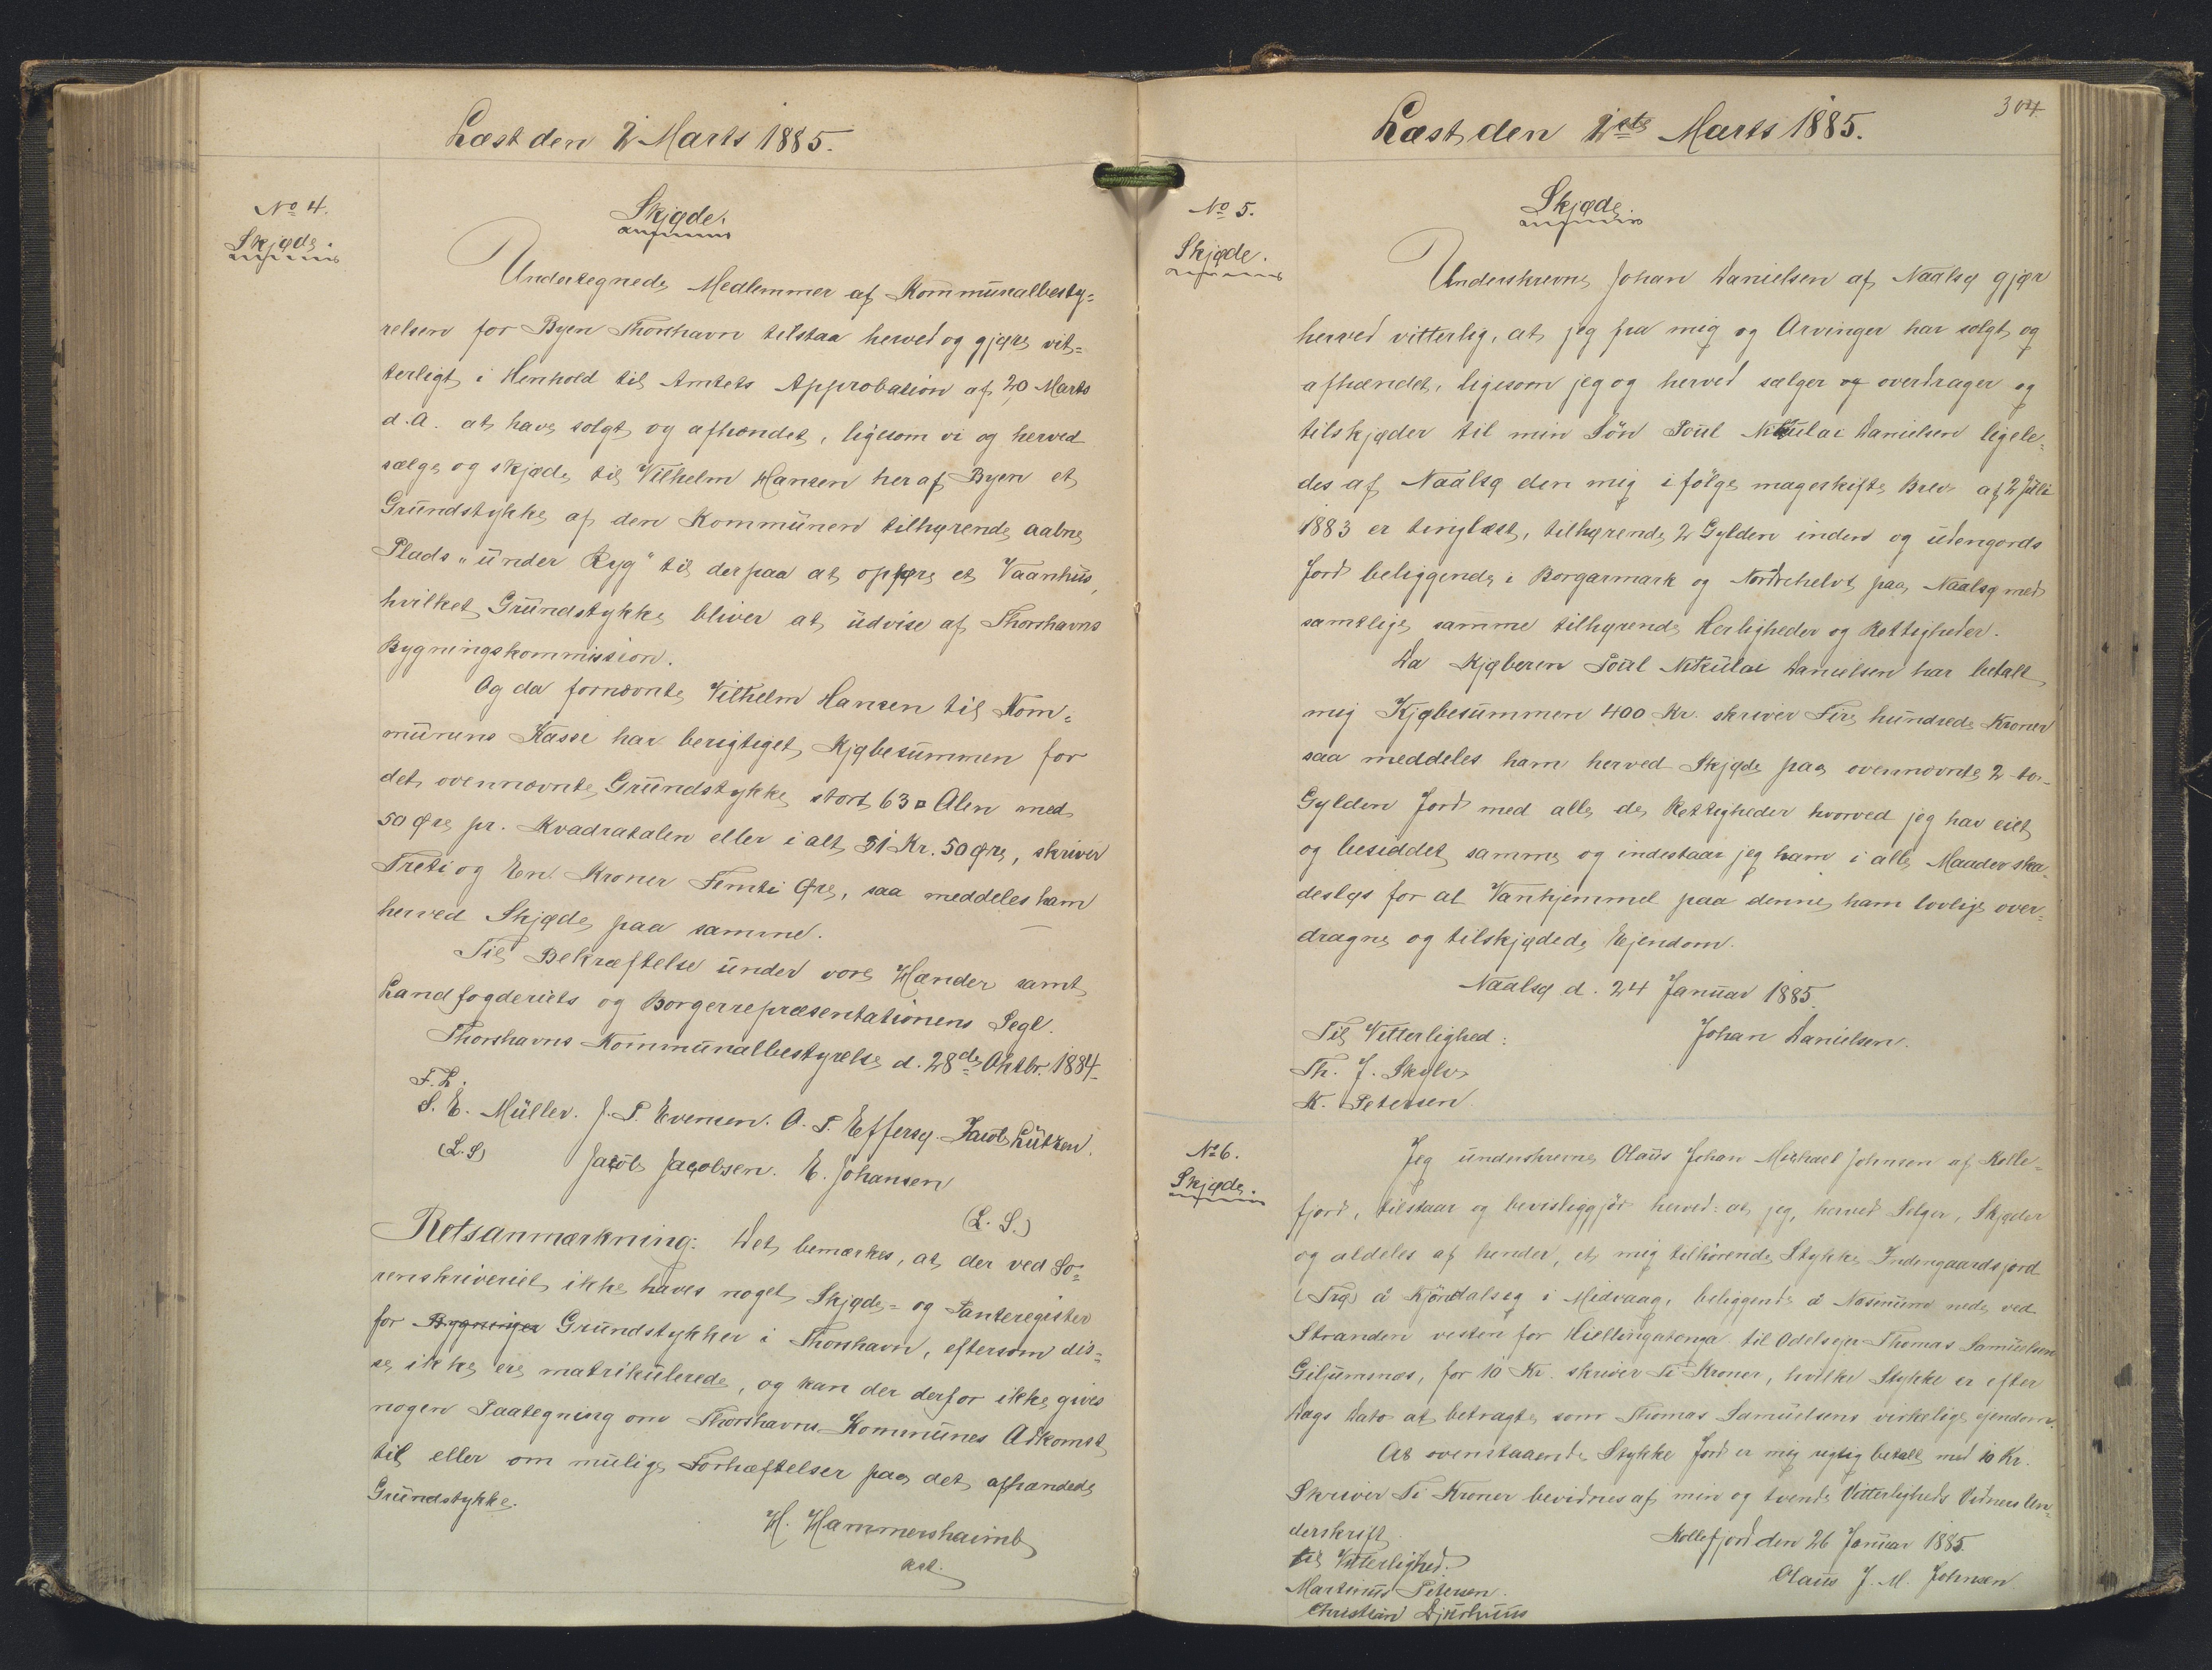 Læst den 2 Marts 1885.
No 4.
Skjøde.
Skjøde.
Undertegnede Medlemmer af Kommunalbesty=
relsen for Byen Thorshavn tilstaa herved og gjøre vit=
terligt i Henhold til Amtets Approbation af 20 Marts
d.A. at have solgt og afhændet, ligesom vi og herved
sælge og skjøde til Vilhelm Hansen her af Byen et
Grundstykke af den Kommunen tilhørende aabne
Plads "under Ryg" til derpaa at opføre et Vaanhus,
hvilket Grundstykke bliver at udvise af Thorshavns
Bygningskommission.
Og da fornævnte Vilhelm Hansen til Kom=
munens Kasse har berigtiget Kjøbesummen for
det ovennævnte Grundstykke stort 63 □ Alen med
50 Øre pr. Kvadratalen eller i alt 31 Kr. 50 Øre, skriver
Treti og En Kroner Femti Øre, saa meddeles ham
herved Skjøde paa samme.
Til Bekræftelse under vore Hænder samt
Landfogderiets og Borgerrepræsentationens Segl.
Thorshavns Kommunalbestyrelse d. 28de Oktbr. 1884.
F.L.
S. E. Müller. J. P. Evensen. O. P. Effersø. Jacob Lützen.
(L.S) Jacob Jacobsen. E. Johansen
(L. S.)
Retsanmærkning: Det bemærkes, at der ved So=
renskriveriet ikke haves noget Skjøde- og Panteregister
for Bygninger Grundstykker i Thorshavn, eftersom dis=
se ikke ere matrikulerede, og kan der derfor ikke gives
nogen Paategning om Thorshavns Kommunes Adkomst
til eller om mulige Forhæftelser paa det afhændede
Grundstykke.
H. Hammershaimb
kst.
304
Læst den 2det Marts 1885.
No 5.
Skjøde.
Skjøde.
Underskrevne Johan Danielsen af Naalsø gjør
herved vitterlig, at jeg fra mig og Arvinger har solgt og
afhændet, ligesom jeg og herved sælger og overdrager og
tilskjøder til min Sön Poul Nikulai Danielsen ligele=
des af Naalsø den mig ifölge mageskifte Brev af 2 Juli
1883 er tinglæst, tilhørende 2 Gylden inden og udengords
Jord beliggende i Borgarmark og Nordrehelvt paa Naalsø med
samtlige samme tilhørende Herligheder og Rettigheder.
Da Kjøberen Poul Nikulai Danielsen har betalt
mig Kjøbesummen 400 Kr. skriver Fire hundrede Kroner
saa meddeles ham herved Skjøde paa ovennævnte 2 to-
Gylden Jord med alle de Rettigheder hvorved jeg har eiet
og besiddet samme og indestaar jeg ham i alle Maader ska=
desløs for al Vanhjemmel paa denne ham lovlige over=
dragne og tilskjødede Ejendom.
Naalsø d. 24 Januar 1885.
Til Vitterlighed: Johan Danielsen.
Th. J. Skylv
K. Petersen.
No 6.
Skjøde.
Jeg underskrevne Olaus Johan Michael Johnsen af Kolle=
fjord, tilstaar og bevisliggjör herved: at jeg, herved Selger, Skjøder
og aldeles af hender, et mig tilhörende Stykke Indengaardsjord
(Trø) á Kjördalseg i Midvaag, beliggende á Nasinum nede ved
Stranden vesten for Hiellingatonga til Odelsejer Thomas Samuelsen
Giljumsnes, for 10 Kr. skriver Ti Kroner, hvilke Stykke er efter
Dags Dato at betragte som Thomas Samuelsens virkelige ejendom.
At ovenstaaende Stykke Jord er mig rigtig betalt med 10 Kr.
Skriver Ti Kroner bevidnes af min og tvende Vitterligheds Vidners Un=
derskrift.
Kollefjord den 26 Januar 1885.
til Vitterlighed. Olaus J. M. Johnsen
Martinus Petersen.
Christian Djurhuus